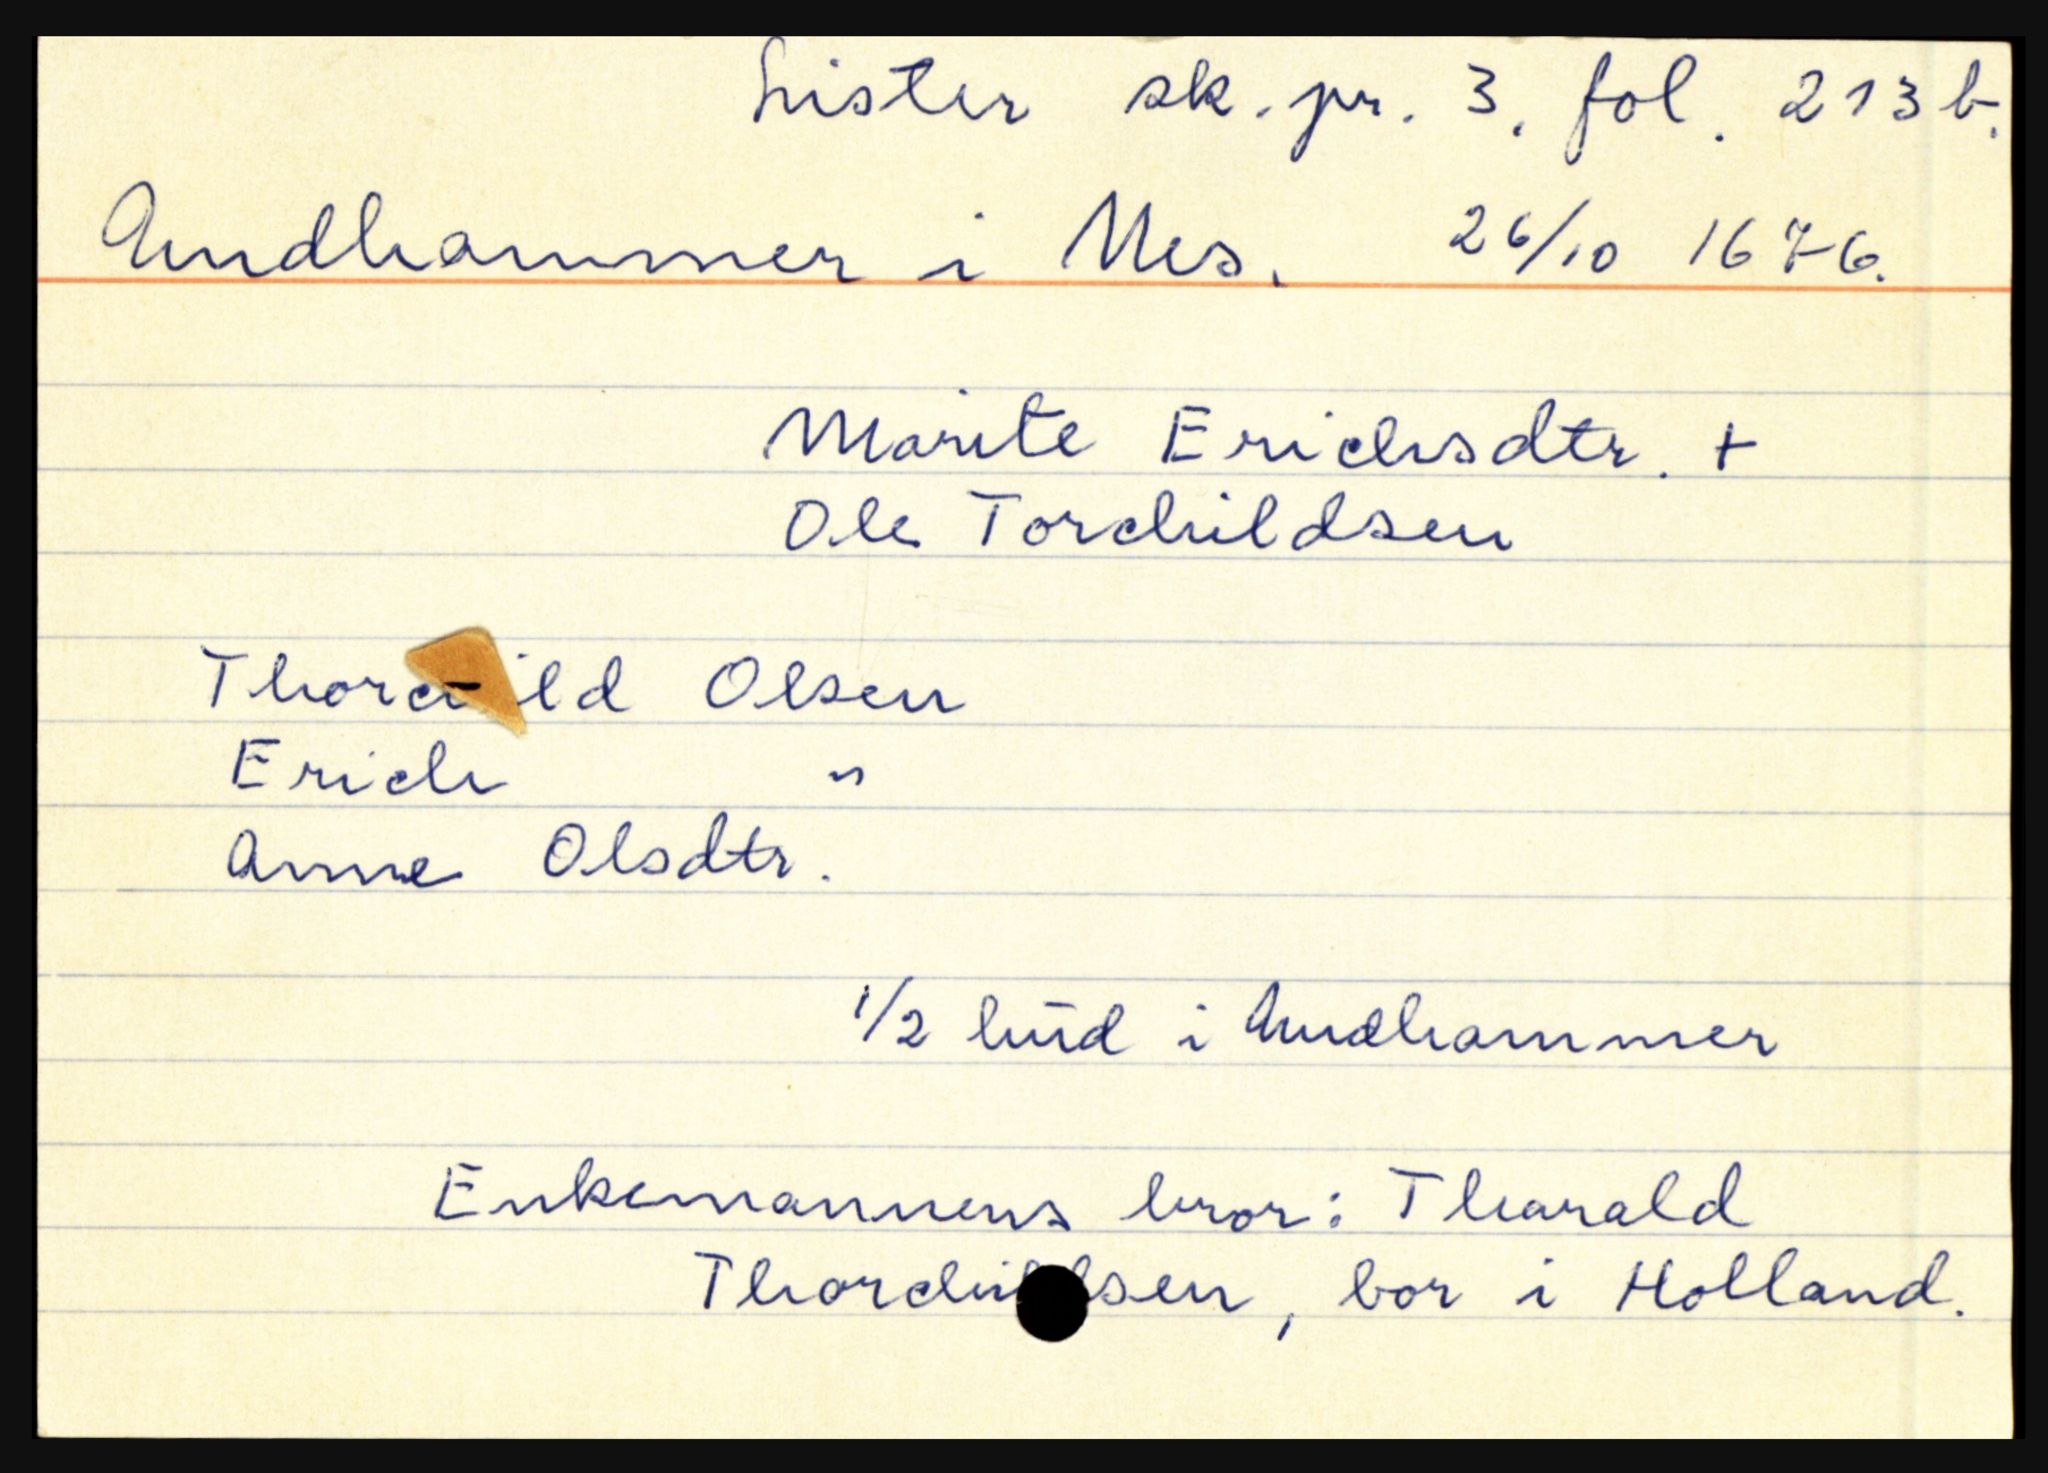 Lister sk. pr. 3, fol. 213 b.
Andhammer i Nes. 26/10 1676.
Marite Erichsdtr. +
Ole Torchildsen
Thorchild Olsen
Erich "
Anne Olsdtr.
1/2 hud i Andhammer
Enkemannens bror: Tharald
Thorchildsen, bor i Holland.